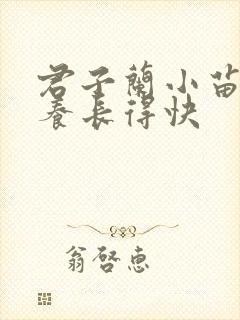 君子蘭小苗
養長得快
翁啓惠